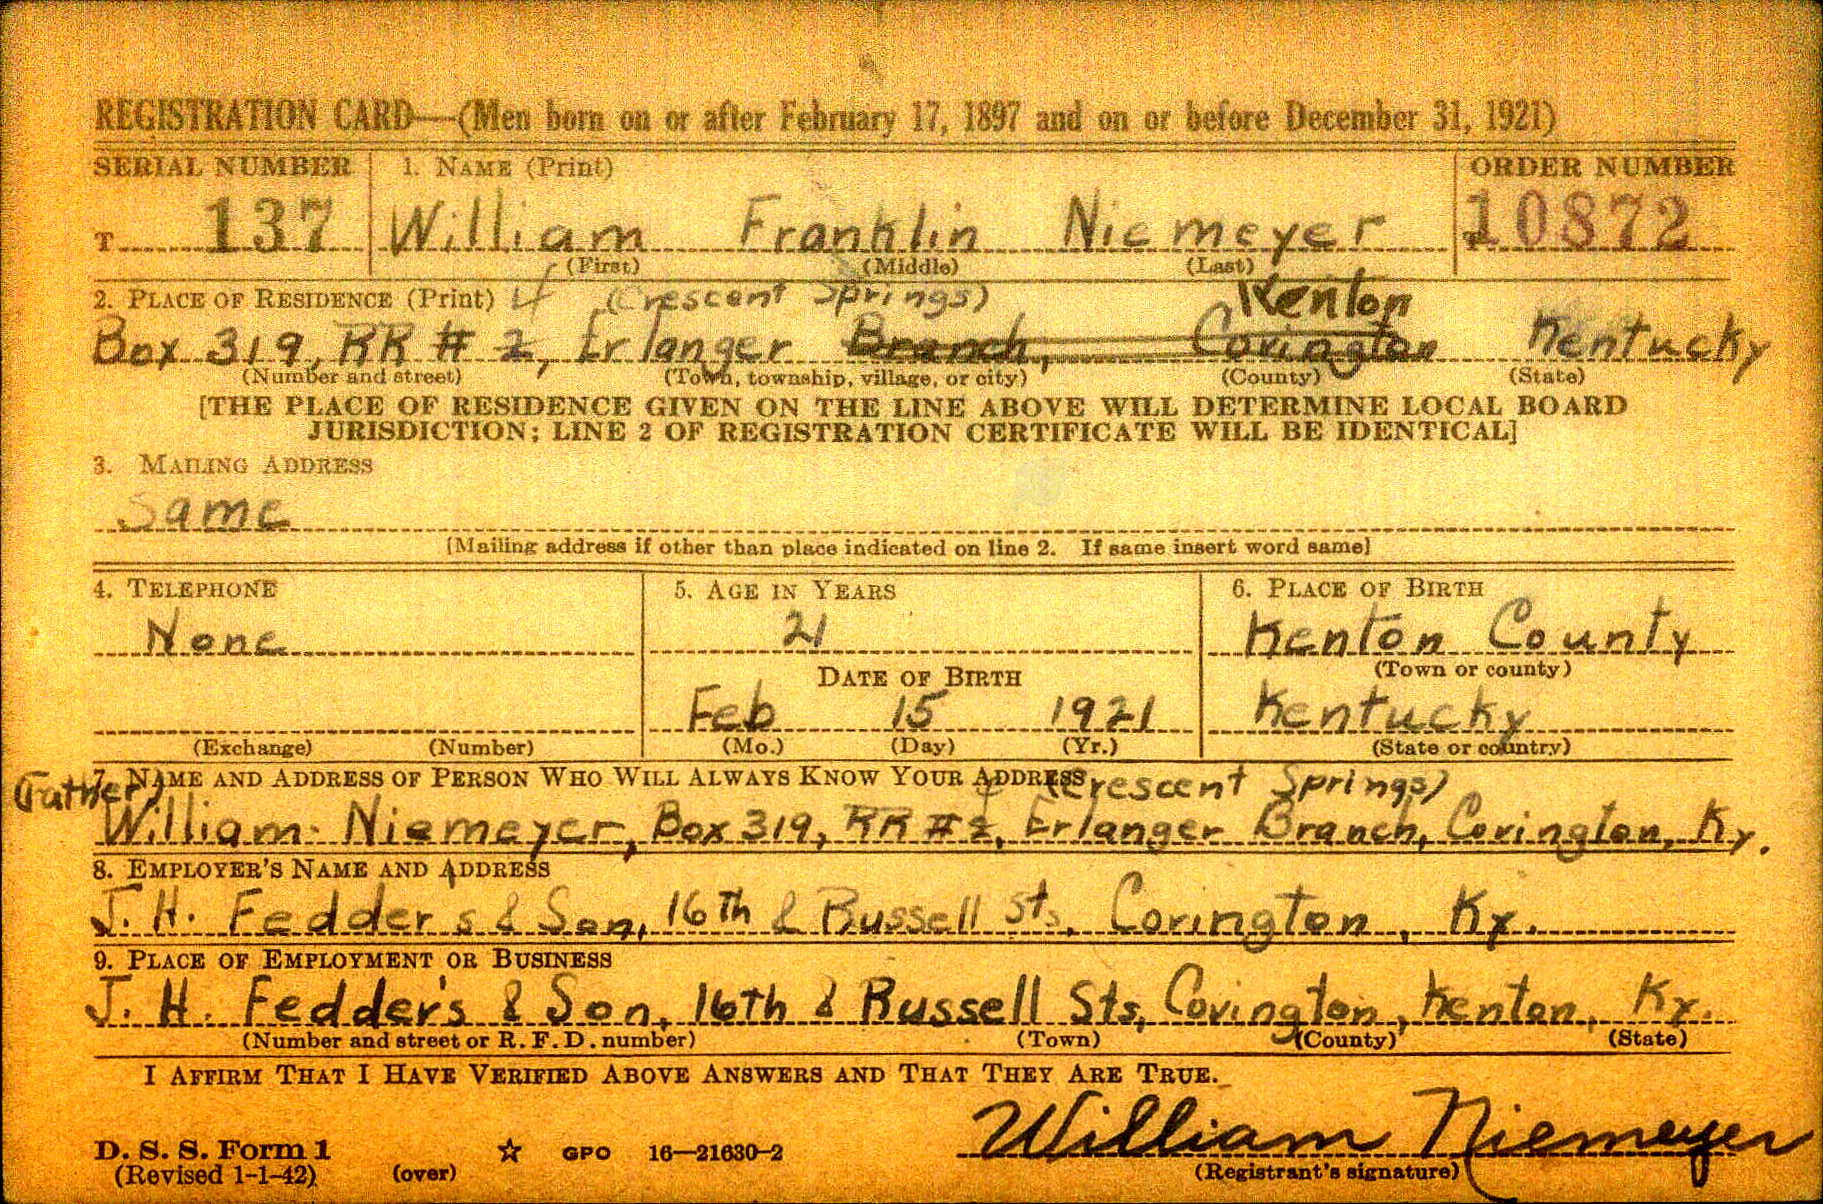 REGISTRATION CARD—(Men born on or after February 17, 1897 and on or before December 31, 1921)
SERIAL NUMBER 1. NAME (Print) ORDER NUMBER
T 137 William Franklin Niemeyer 10872
(First) (Middle) (Last)
2. PLACE OF RESIDENCE (Print) 4 (Crescent Springs) Kenton
Box 319, RR # 2, Erlanger Branch, Covington Kentucky
(Number and street) (Town, township, village, or city) (County) (State)
[THE PLACE OF RESIDENCE GIVEN ON THE LINE ABOVE WILL DETERMINE LOCAL BOARD
JURISDICTION; LINE 2 OF REGISTRATION CERTIFICATE WILL BE IDENTICAL]
3. MAILING ADDRESS
Same
[Mailing address if other than place indicated on line 2. If same insert word same]
4. TELEPHONE 5. AGE IN YEARS 6. PLACE OF BIRTH
None 21 Kenton County
DATE OF BIRTH (Town or county)
Feb 15 1921 Kentucky
(Exchange) (Number) (Mo.) (Day) (Yr.) (State or country)
7. NAME AND ADDRESS OF PERSON WHO WILL ALWAYS KNOW YOUR ADDRESS (Crescent Springs)
(Father) William Niemeyer, Box 319, RR # 2, Erlanger Branch, Covington, Ky.
8. EMPLOYER'S NAME AND ADDRESS
J. H. Fedders & Son, 16th & Russell Sts. Covington, Ky.
9. PLACE OF EMPLOYMENT OR BUSINESS
J. H. Fedder's & Son, 16th & Russell Sts, Covington, Kenton, Ky.
(Number and street or R. F. D. number) (Town) (County) (State)
I AFFIRM THAT I HAVE VERIFIED ABOVE ANSWERS AND THAT THEY ARE TRUE.
William Niemeyer
D. S. S. Form 1 ☆ GPO 16—21630-2
(Revised 1-1-42) (over) (Registrant's signature)